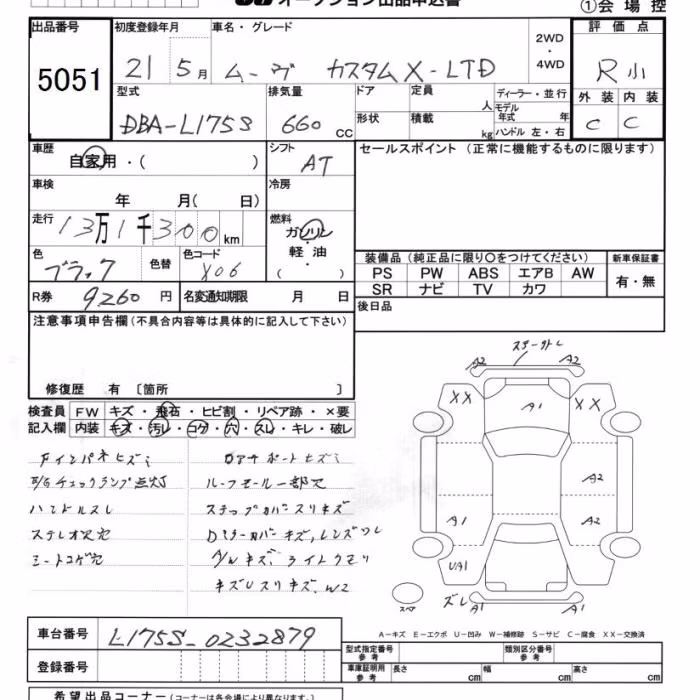 オークション出品申込書
①会 場 控
出品番号 初度登録年月 車名・グレード 評 価 点
5051 21年 5月 ムーヴ カスタムX-LTD 2WD・4WD R小
型式 排気量 ドア 定員 人 ディーラー・並行 外 装 内 装
DBA-L175S 660cc 形状 積載 kg モデル年式 年 ハンドル 左・右 C C
車歴 自家用・( ) シフト AT セールスポイント(正常に機能するものに限ります)
車検 年 月( 日) 冷房
走行 13万1千300km 燃料 ガソリン・軽油( )
色 ブラック 色替 色コード X06
装備品(純正品に限り○をつけてください) 新車保証書
PS PW ABS エアB AW 有・無
SR ナビ TV カワ
R券 9260円 名変通知期限 月 日 後日品
注意事項申告欄(不具合内容等は具体的に記入して下さい)
修復歴 有 〔箇所 〕
検査員 FW キズ・飛石・ヒビ割・リペア跡・×要
記入欄 内装 キズ・汚レ・コゲ・穴・スレ・キレ・破レ
インパネキズミ
E/Gチェックランプ点灯
ハンドルスレ
ステレオ欠穴
シートコゲ穴
ロアサポートキズミ
ルーフモール一部欠
ステップカバースリキズ
Dミラーカバーキズ,レンズワレ
A/Wキズ、ライトクモリ
キズUスリキズ,W2
A2 A2
XX A1 XX
A2
A1 A2
UA1
スペア ズレ A1 A1
A－キズ E－エクボ U－凹み W－補修跡 S－サビ C－腐食 XX－交換済
車台番号 L175S-0232879
登録番号
型式指定番号 参考 類別区分番号 参考
車庫証明用 参考 長さ cm 幅 cm 高さ cm
希望出品コーナー(コーナーは各会場により異なります。)